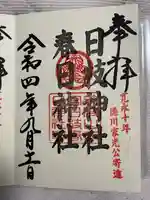 奉拝
寛永十年
徳川家光公寄進
日枝神社
春日神社
令和四年九月十一日